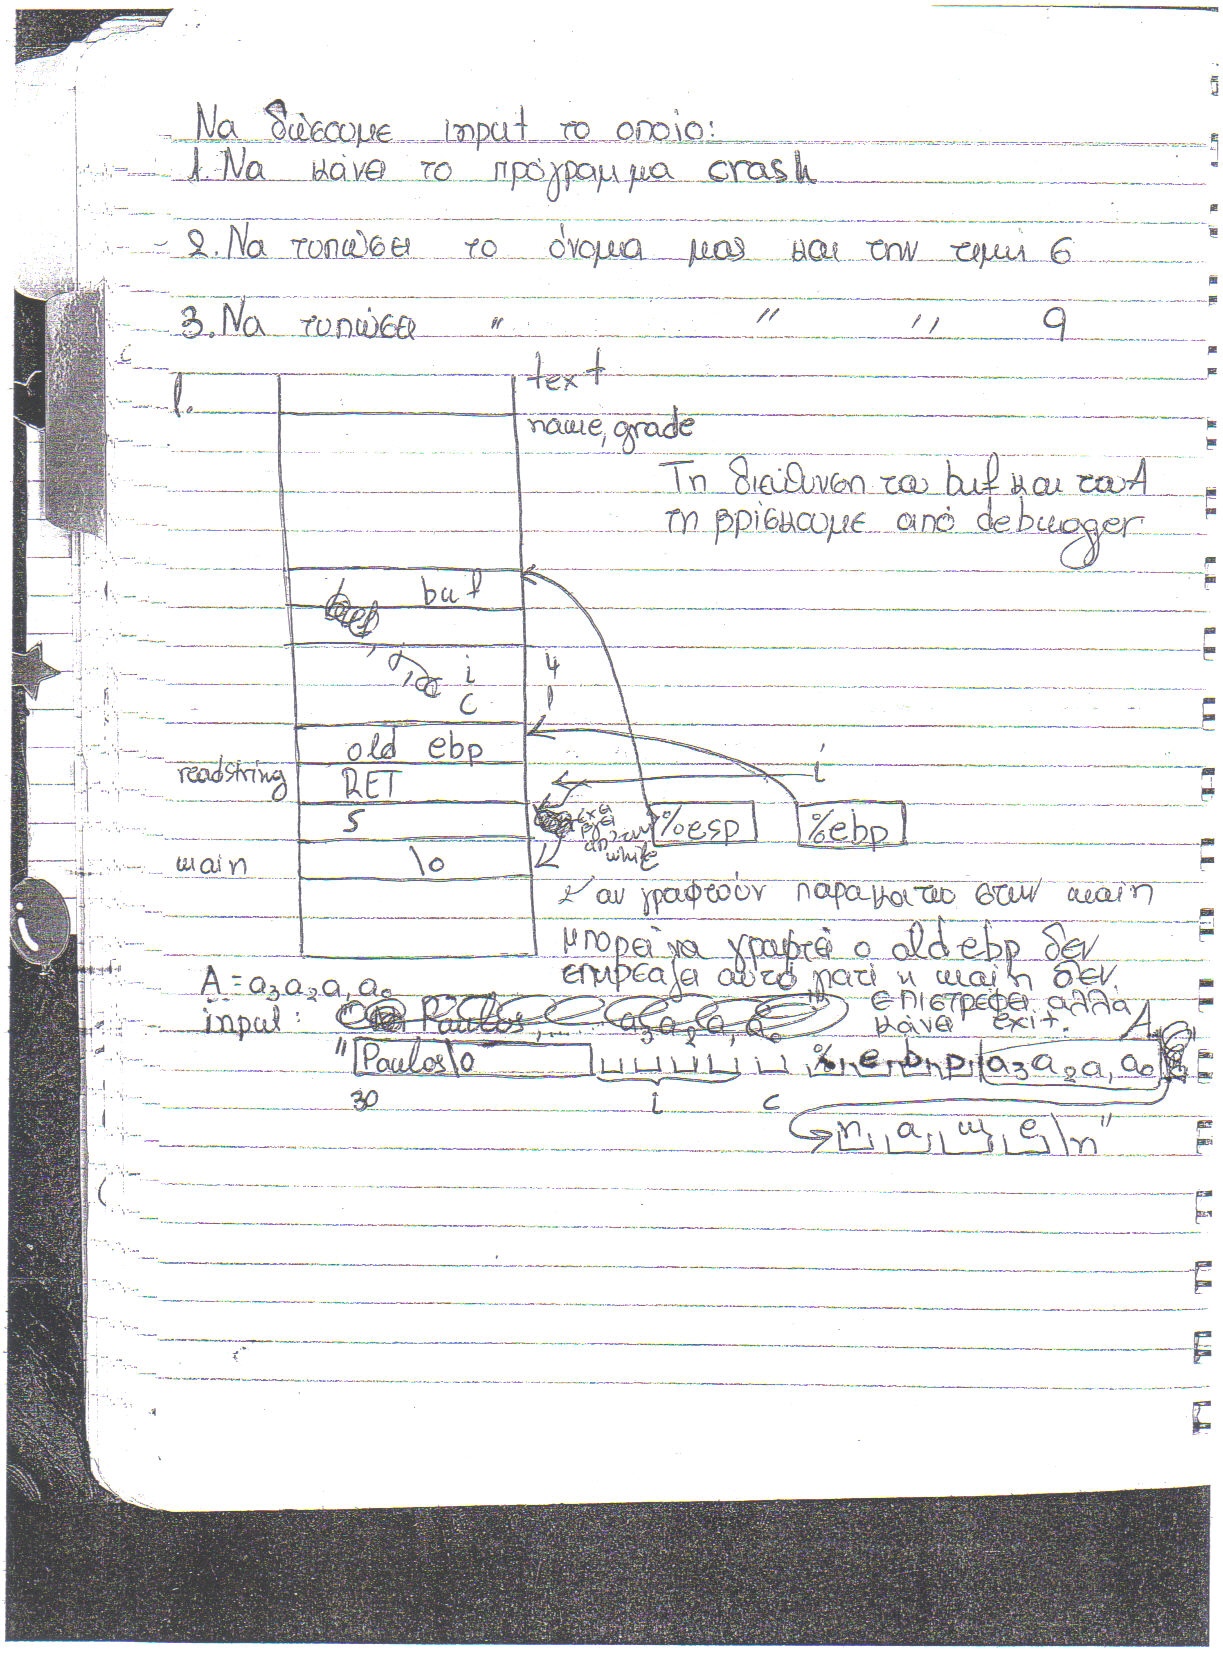 Να δώσουμε input το οποίο:
1. Να κάνει το πρόγραμμα crash
2. Να τυπώσει το όνομα μας και την τιμή 6
3. Να τυπώσει " " " 9
1.
text
name, grade
Τη διεύθυνση του buf και του A
τη βρίσκουμε από debugger
buf
i 4
c 1
old ebp
readstring RET
i
s
έχει βγει από την while
%esp
%ebp
main
\0
αν γραφτούν παρακάτω στην main
μπορεί να γραφτεί ο old ebp δεν
επηρεάζει αυτό γιατί η main δεν
επιστρέφει αλλά
κάνει exit.
A = a3 a2 a1 a0
input: Paulos a3 a2 a1 a0
A
"Paulos\0 %, e, b, p, a3 a2 a1 a0
30 i c
n, a, m, e \n"